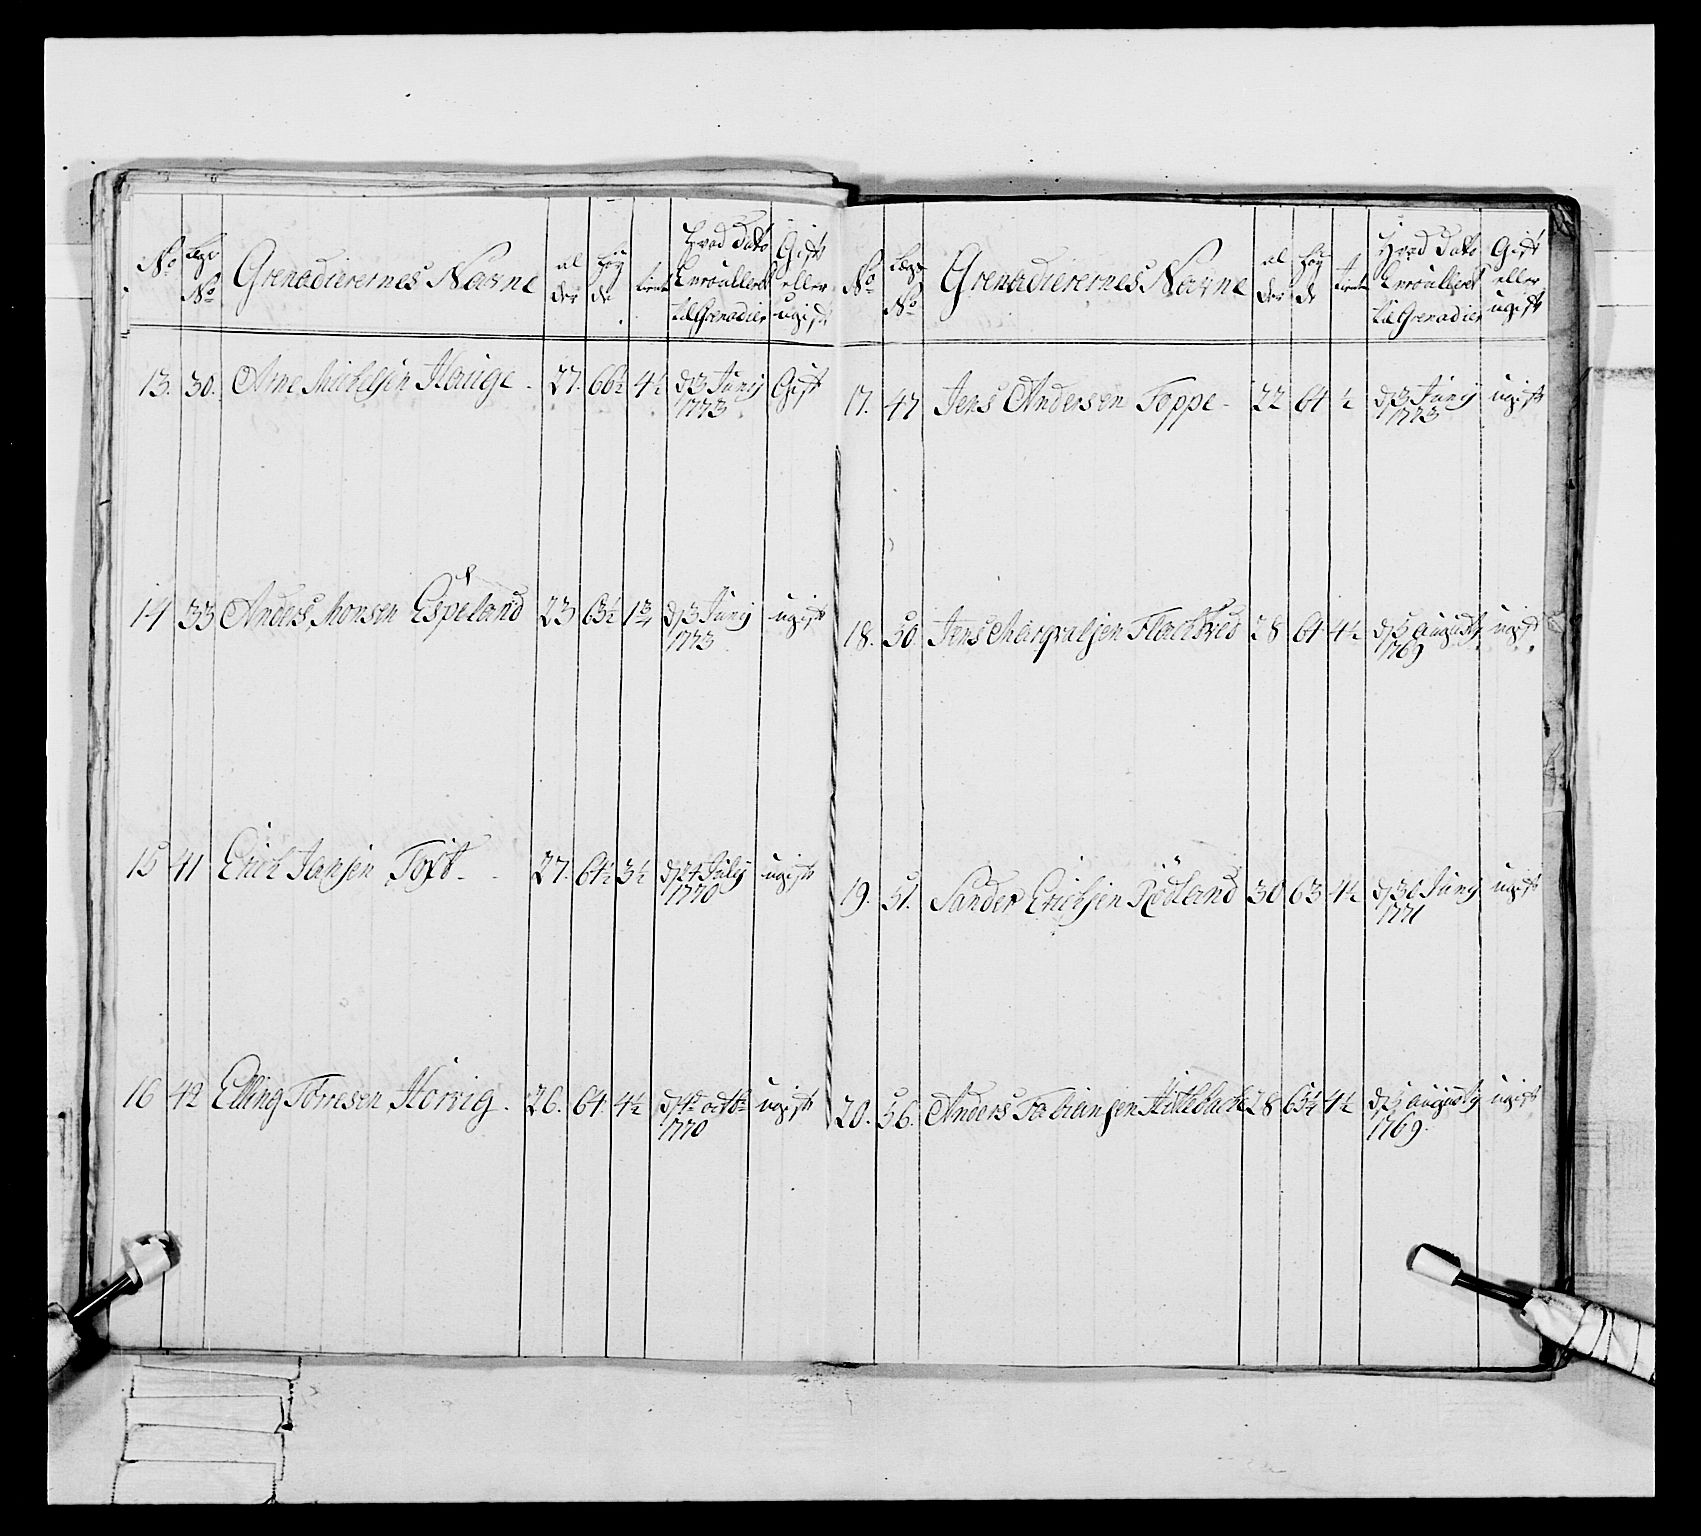 No Legd No Grenadierernes Navne al der Høy de tieneste Hvad Dato Enroullerit til Grenadier Gift eller ugift
13. 30. Arne Michelsen Hauge 27. 66½ 4½ d 3 Junij 1773 Gift
14 33 Anders Monsen Espeland 23 63½ 1¾ d 3 Junij 1773 ugift
15 41 Erich Jansen Toft 27. 64½ 3½ d 24 Julij 1770 ugift
16 42 Elling Torresen Horvig 26. 64. 4½ 1770 ugift
No Legd No Grenadierernes Navne al der Høy de tieneste Hvad Dato Enroullerit til Grenadier Gift eller ugift
17. 47 Jens Andersen Toppe 22 64 ½ d 3 Junij 1773 ugift
18. 50. Jens Marqvalsen 28 64 4½ d 5 Augusty 1769 ugift
19. 51. Sander Erichsen Rödland 30 63 4½ d 30 Junij 1771 ugift
20. 56. Anders Fabiansen 28 65¼ 4½ d 5 Augusty 1769. ugift